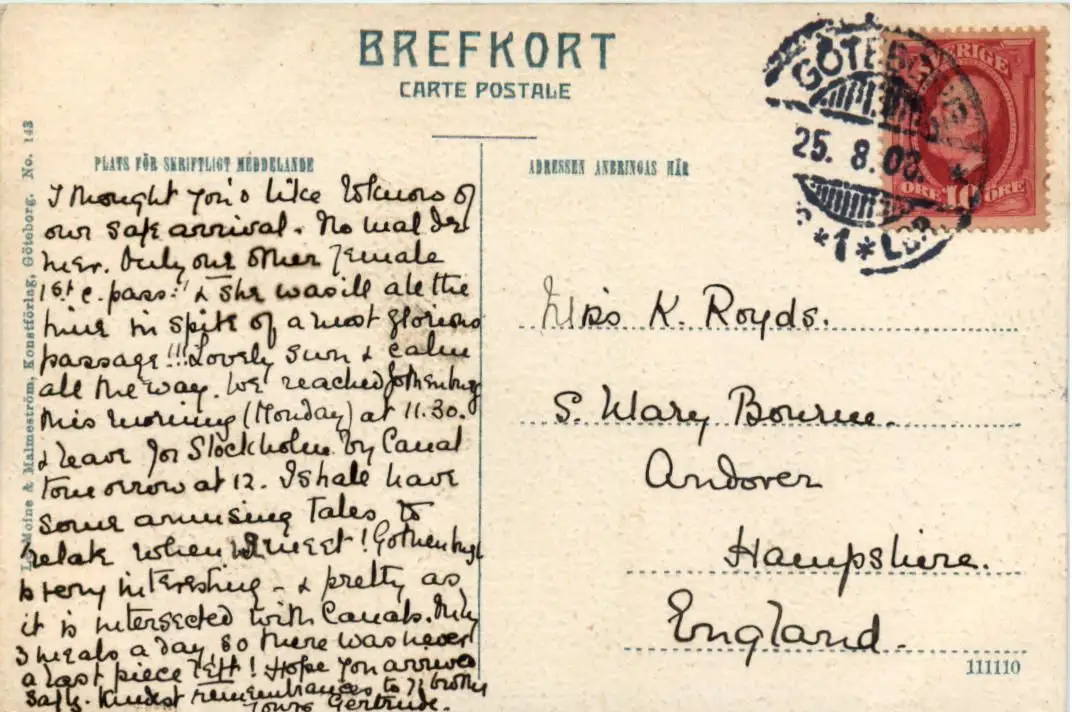 BREFKORT
CARTE POSTALE
PLATS FÖR SKRIFTLIGT MEDDELANDE
I thought you'd like to know of
our safe arrival. No mal de
mer. Only one other female
1st c. pass: & she was ill all the
time in spite of a most glorious
passage!!! Lovely sun & calm
all the way. We reached Gothenburg
this morning (Monday) at 11.30.
& leave for Stockholm by Canal
tomorrow at 12. I shall have
some amusing tales to
relate when we meet! Gothenburg
is very interesting - & pretty as
it is intersected with Canals. Only
3 meals a day, so there was never
a last piece left! Hope you arrived
safly. Kindest remembrances to yr brother
Yours Gertrude.
ADRESSEN ANBRINGAS HÄR
Miss K. Royds.
S. Mary Bourne.
Andover
Hampshire.
England.
111110
Moine & Malmeström, Konstförlag, Göteborg. No. 143
GÖTEBORG
25. 8.
*1* LBR.
SVERIGE
ÖRE 10 ÖRE